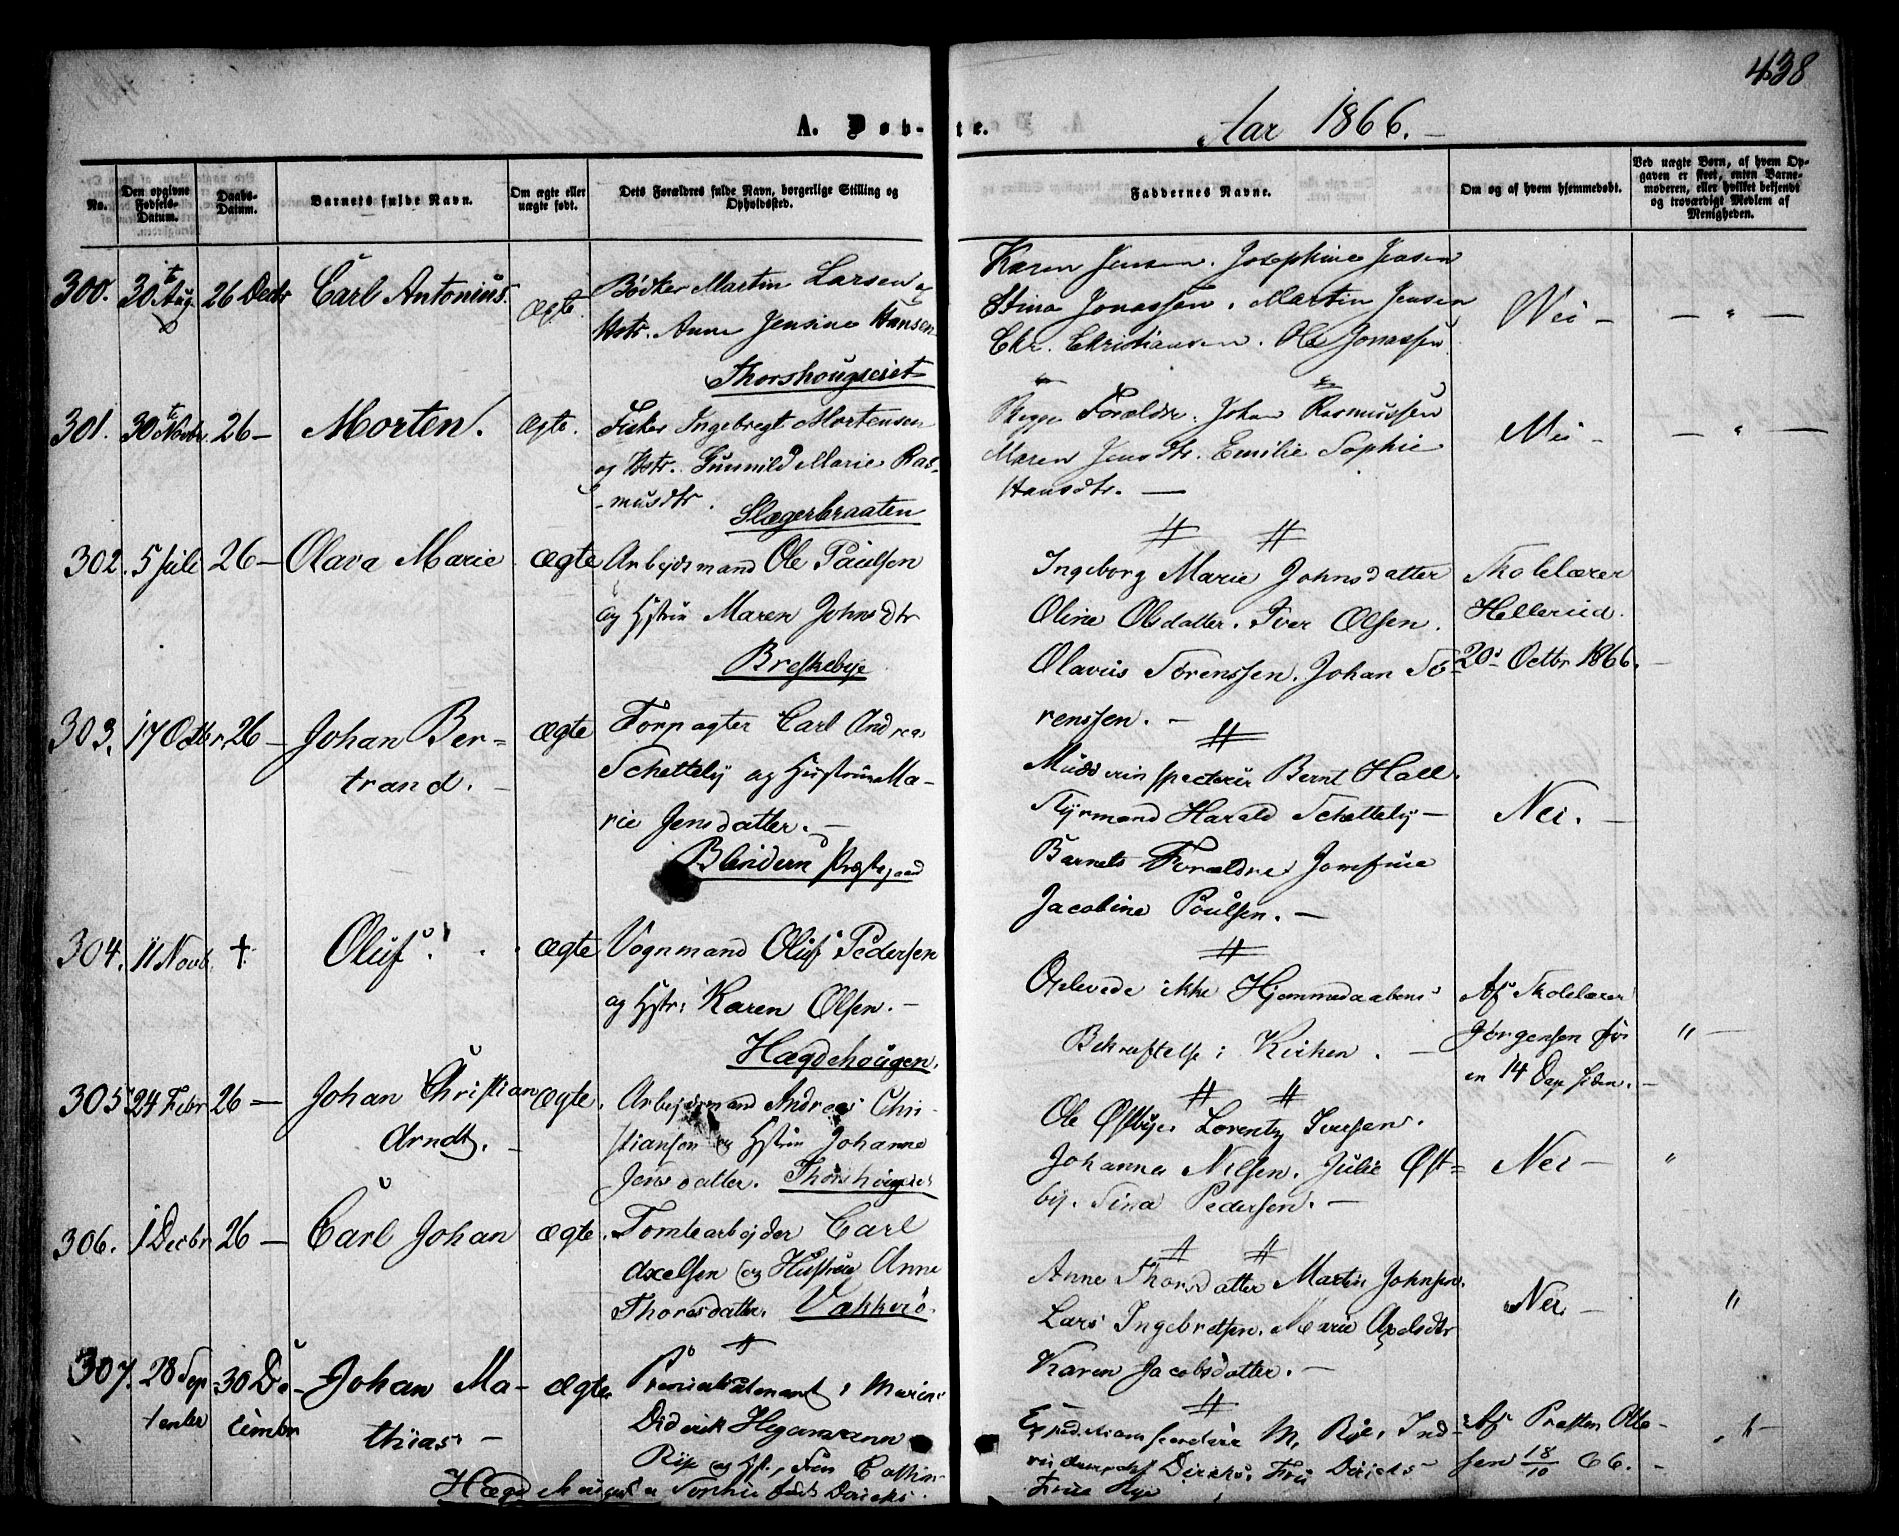 438
A. Døb-te. Aar 1866.
No.
Den opgivne Fødsels-Datum.
Daabs-Datum.
Barnets fulde Navn.
Om ægte eller uægte født.
Dets Forældres fulde Navn, borgerlige Stilling og Opholdssted.
Faddernes Navne.
Om og af hvem hjemmedøbt.
Ved uægte Børn, af hvem Op-
gaven er skeet, enten Barne-
moderen, eller hvilket bekjendt
og troværdigt Medlem af
Menigheden.
300. 30te Aug. 26 Decbr Carl Antonius. Ægte.
Bødker Martin Larsen og
Hstr. Anne Jensine Hansen
Thorshougseiet
Karen Jensen. Josephine Jensen
Stina Jonassen. Martin Jensen
Chr. Christiansen. Ole Jonassen
Nei –
301. 30te Novbr. 26 – Morten. Ægte.
Fisker Ingebregt Mortensen
og Hstr. Gunnild Marie Ras-
musdtr.
Slægerbraaten
Begge Forældre. Johan Rasmussen
Maren Jensdtr. Emilie Sophie
Hansdtr. –
Nei –
302. 5 Juli 26 – Olava Marie Ægte
Arbejdsmand Ole Paulsen
og Hstru Maren Johnsdtr
Breskebye
Ingeborg Marie Johnsdatter
Oline Olsdatter. Iver Olsen.
Olavus Sørenssen. Johan Sø-
renssen. –
Skolelærer
Hellerud.
20de Octbr 1866. –
303. 17 Octbr 26 – Johan Ber-
trand. – Ægte
Forpagter Carl Andreas
Schetteby og Hustrue Ma-
rie Jensdatter. –
Blindern Præstegaard
Mudderinspecteur Bernt Hall.
Styrmand Harald Schetteby –
Barnets Forældre. Josefine
Jacobine Poulsen. –
Nei. –
304. 11 Novb. † Oluf. Ægte
Vognmand Oluf Pedersen
og Hstr: Karen Olsen. –
Hægdehougen.
Oplevede ikke Hjemmedaabens
Bekræftelse i Kirken. –
Af Skolelærer
Jørgensen for
en 14 Dage siden. –
305. 24 Febr 26 – Johan Christian
Arndt. – Ægte.
Arbejdsmand Andreas Chri-
stiansen og Hstru Johanne
Jensdatter. Thorshougeiet
Ole Østbye. Lorentz Iversen.
Johanna Nilsen. Julie Øst-
by. Sina Pedersen. –
Nei –
306. 1 Decbr 26 – Carl Johan Ægte.
Tomtearbejder Carl
Axelsen og Hustrue Anne
Thoresdatter. Vækkerø.
Anne Thorsdatter Martin Johnsen.
Lars Ingebretsen. Marie Axelsdtr
Karen Jacobsdatter. –
Nei –
307. 28 Sep
tember 30 De-
cembr Johan Ma-
thias – Ægte
Premierlieutenant i Marine
Diderik Hegermann
Riis og Hst., Fru Cathri
Sophie født Diriks.
Expeditionssecretær M. Riis, Ind-
Diriks. Fru Diriks –
Af Præsten Otte-
sen 18/10 66. –